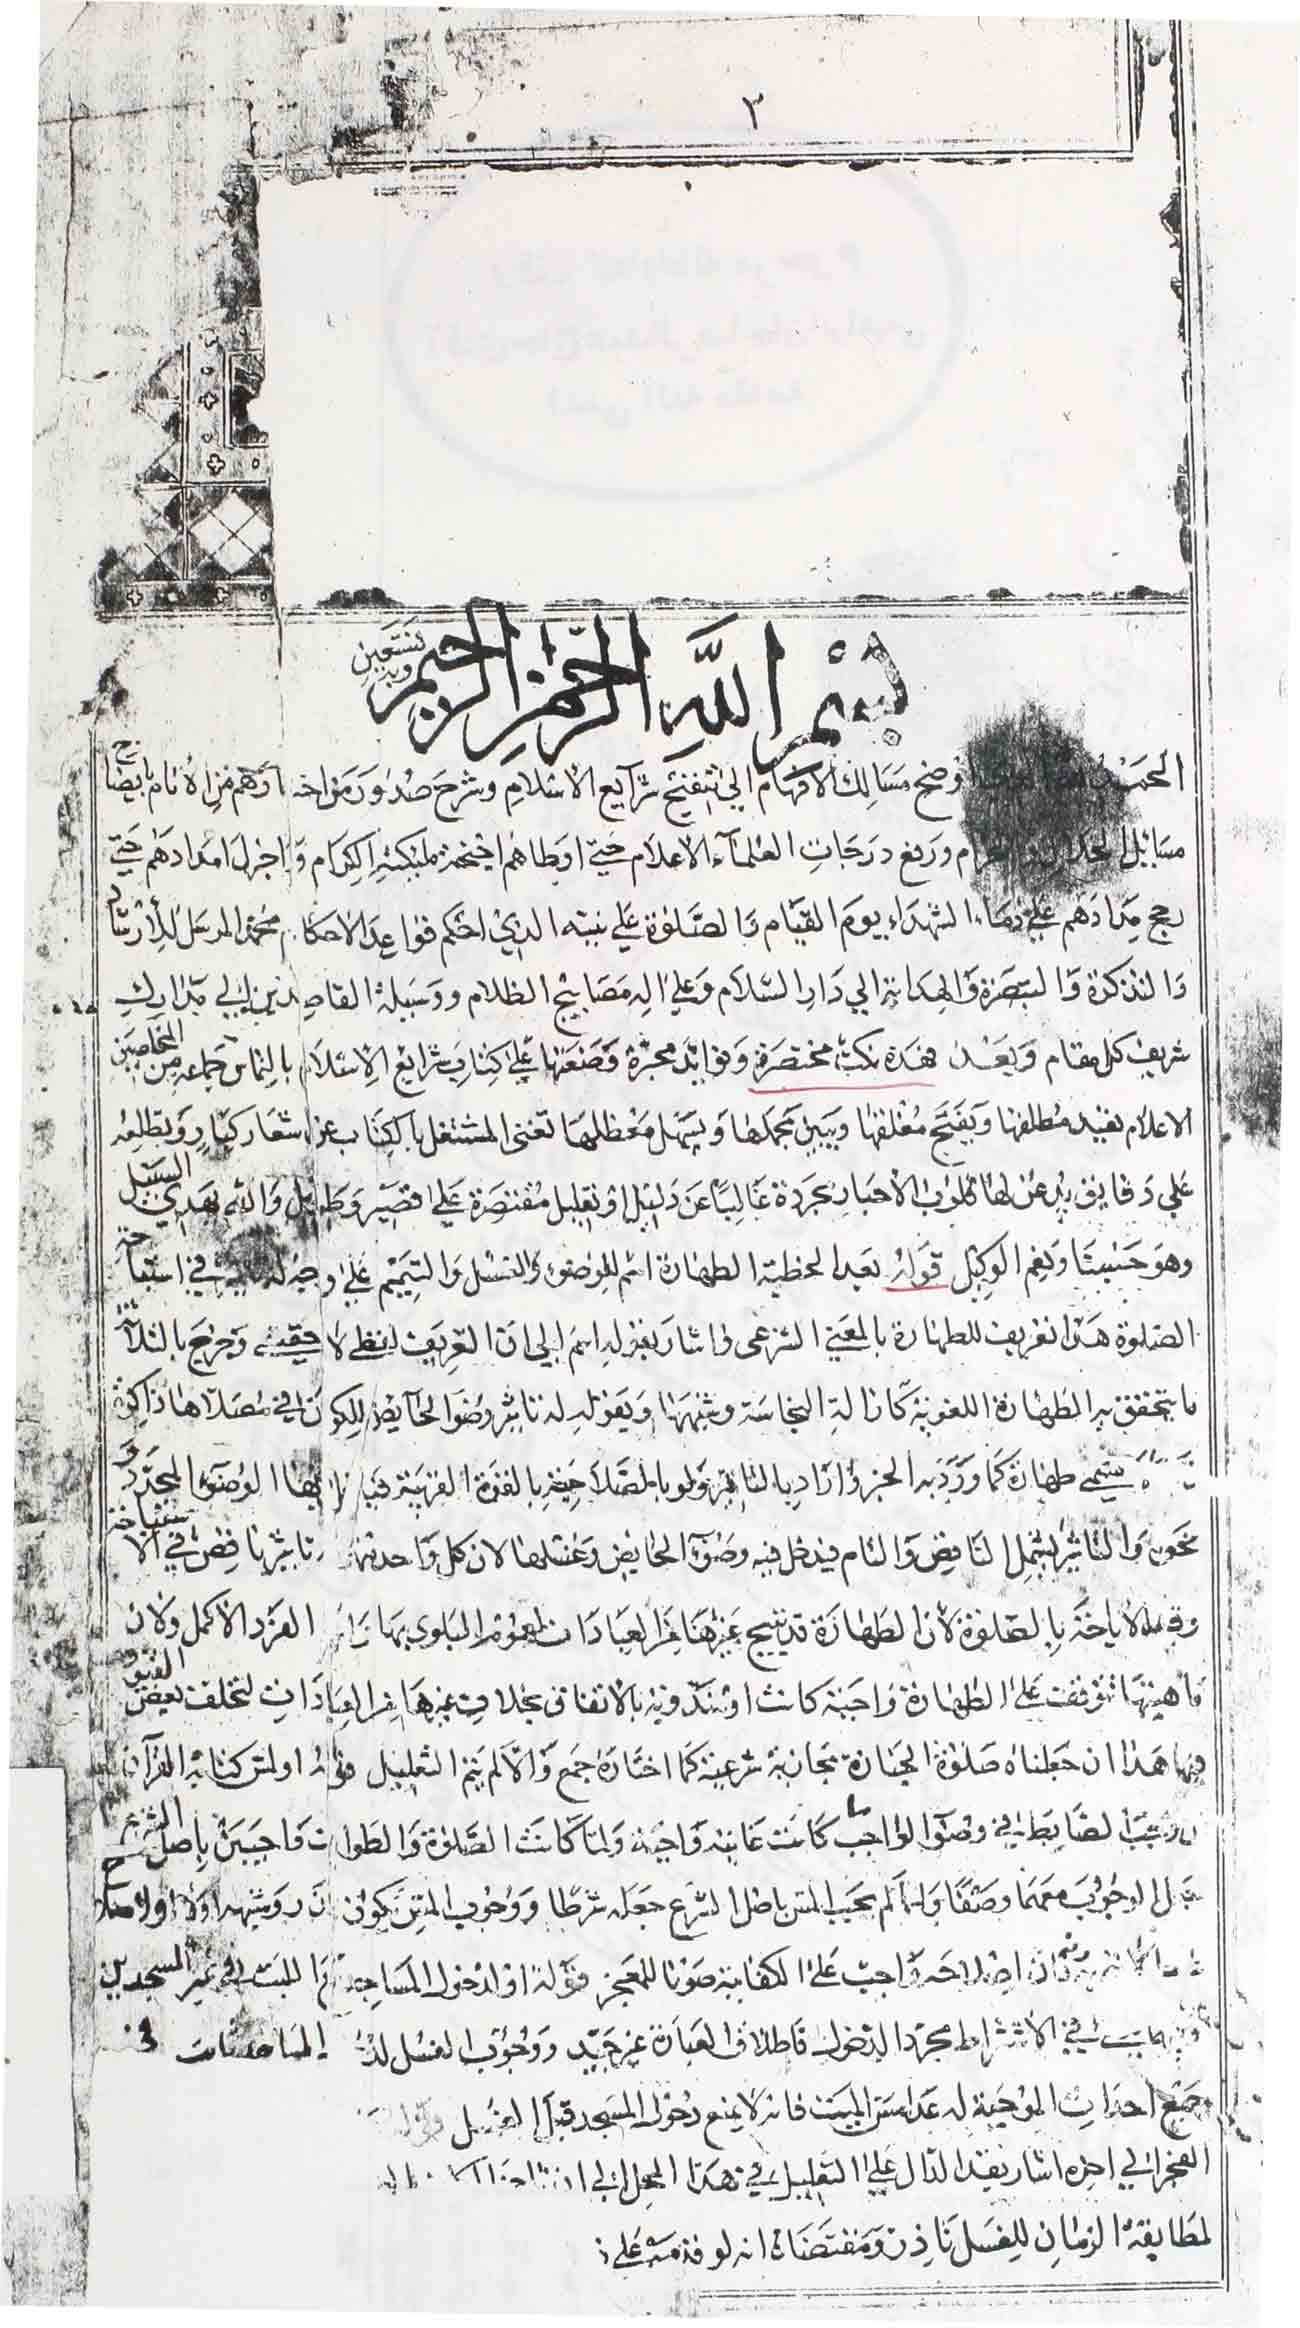 ٣
بسم الله الرحمن الرحيم وبه نستعين
الحمد اوضح مسالك الافهام الى تنقيح شرايع الاسلام وشرح صدور من اختارهم من الانام بايضاح
مسائل الحلال والحرام ورفع درجات العلمآء الاعلام حتى اوطاهم اجنحة ملئكته الكرام واجزل امدادهم حتى
رجح مدادهم على دماء الشهداء يوم القيام والصلوة على نبيه الذي احكم قواعد الاحكام محمد المرسل للارشاد
والتذكرة والتبصرة والهداية الى دار السلام وعلى اله مصابيح الظلام ووسيلة القاصدين الى مدارك
شريف كل مقام وبعد فهذه نكت مختصرة وفوائد محررة وضعتها على كتاب شرايع الاسلام بالتماس جماعة من المخلصين
الاعلام تقيد مطلقها وتفتح مغلقها وتبين مجملها وتسهل معظلها تغني المشتغل بالكتاب عن اسفار كبار وتطلعه
على دقايق يذعن لها قلوب الاحبار مجردة غالبا عن دليل او تعليل مقتصرة على قصير وطويل والله يهدي السبيل
وهو حسبنا ونعم الوكيل قوله بعد الخطبة الطهارة اسم للوضوء والغسل والتيمم على وجه له تاثير في استباحة
الصلوة هذا تعريف للطهارة بالمعنى الشرعي واشار بقوله اسم الى ان التعريف لفظي لا حقيقي وخرج بالثلاثة
ما يتحقق به الطهارة اللغوية كازالة النجاسة وشبهها وبقوله له تاثير وضوء الحايض للكون في مصلاها ذاكرة
يسمى طهارة كما ورد به الخبر واراد بالتاثير ولو بالصلاحية بالقوة القريبة الوضوء المجدد
نحوه والتاثير يشمل الناقص والتام فيدخل فيه وضوء الحايض وغسلها لان كل واحد منهما تاثير ناقص في الاستباحة
الاباحة بالصلوة لان الطهارة قد تبيح غيرها من العبادات لعموم البلوى بها الفرد الاكمل ولان
ماهيتها توقفت على الطهارة واجبة كانت او مندوبة بالاتفاق بخلاف غيرها من العبادات لتخلف بعض القيود
فيها هذا ان جعلناه صلوة الجنازة مجازية شرعية كما اختاره جمع والا لم يتم التعليل قوله او لمس كتابة القرآن
ان وجب الضابط في وضوء الواجب ما كانت غايته واجبة ولما كانت الصلوة والطواف واجبين باصل الشرع
الوجوب معهما وصفا ولما لم يجب المس باصل الشرع جعله شرطا ووجوب المس يكون بنذر وشبهه
اصلاحه واجب على الكفاية صونا للمعجز قوله او لدخول المساجد اللبث في غير المسجدين
في الاشتراط مجرد الدخول فاطلاق العبارة غير جيد ووجوب الغسل لدخول المساجد ثابت في
جميع احداث الموجبة له عدا مس الميت فانه لا يمنع دخول المسجد قبل الغسل
الفجر الى اخره اشار بقيد الدال على التقليل في هذا المحل الى ان
لمطابقة الزمان للغسل نادر ومقتضاه انه لو قدمه على